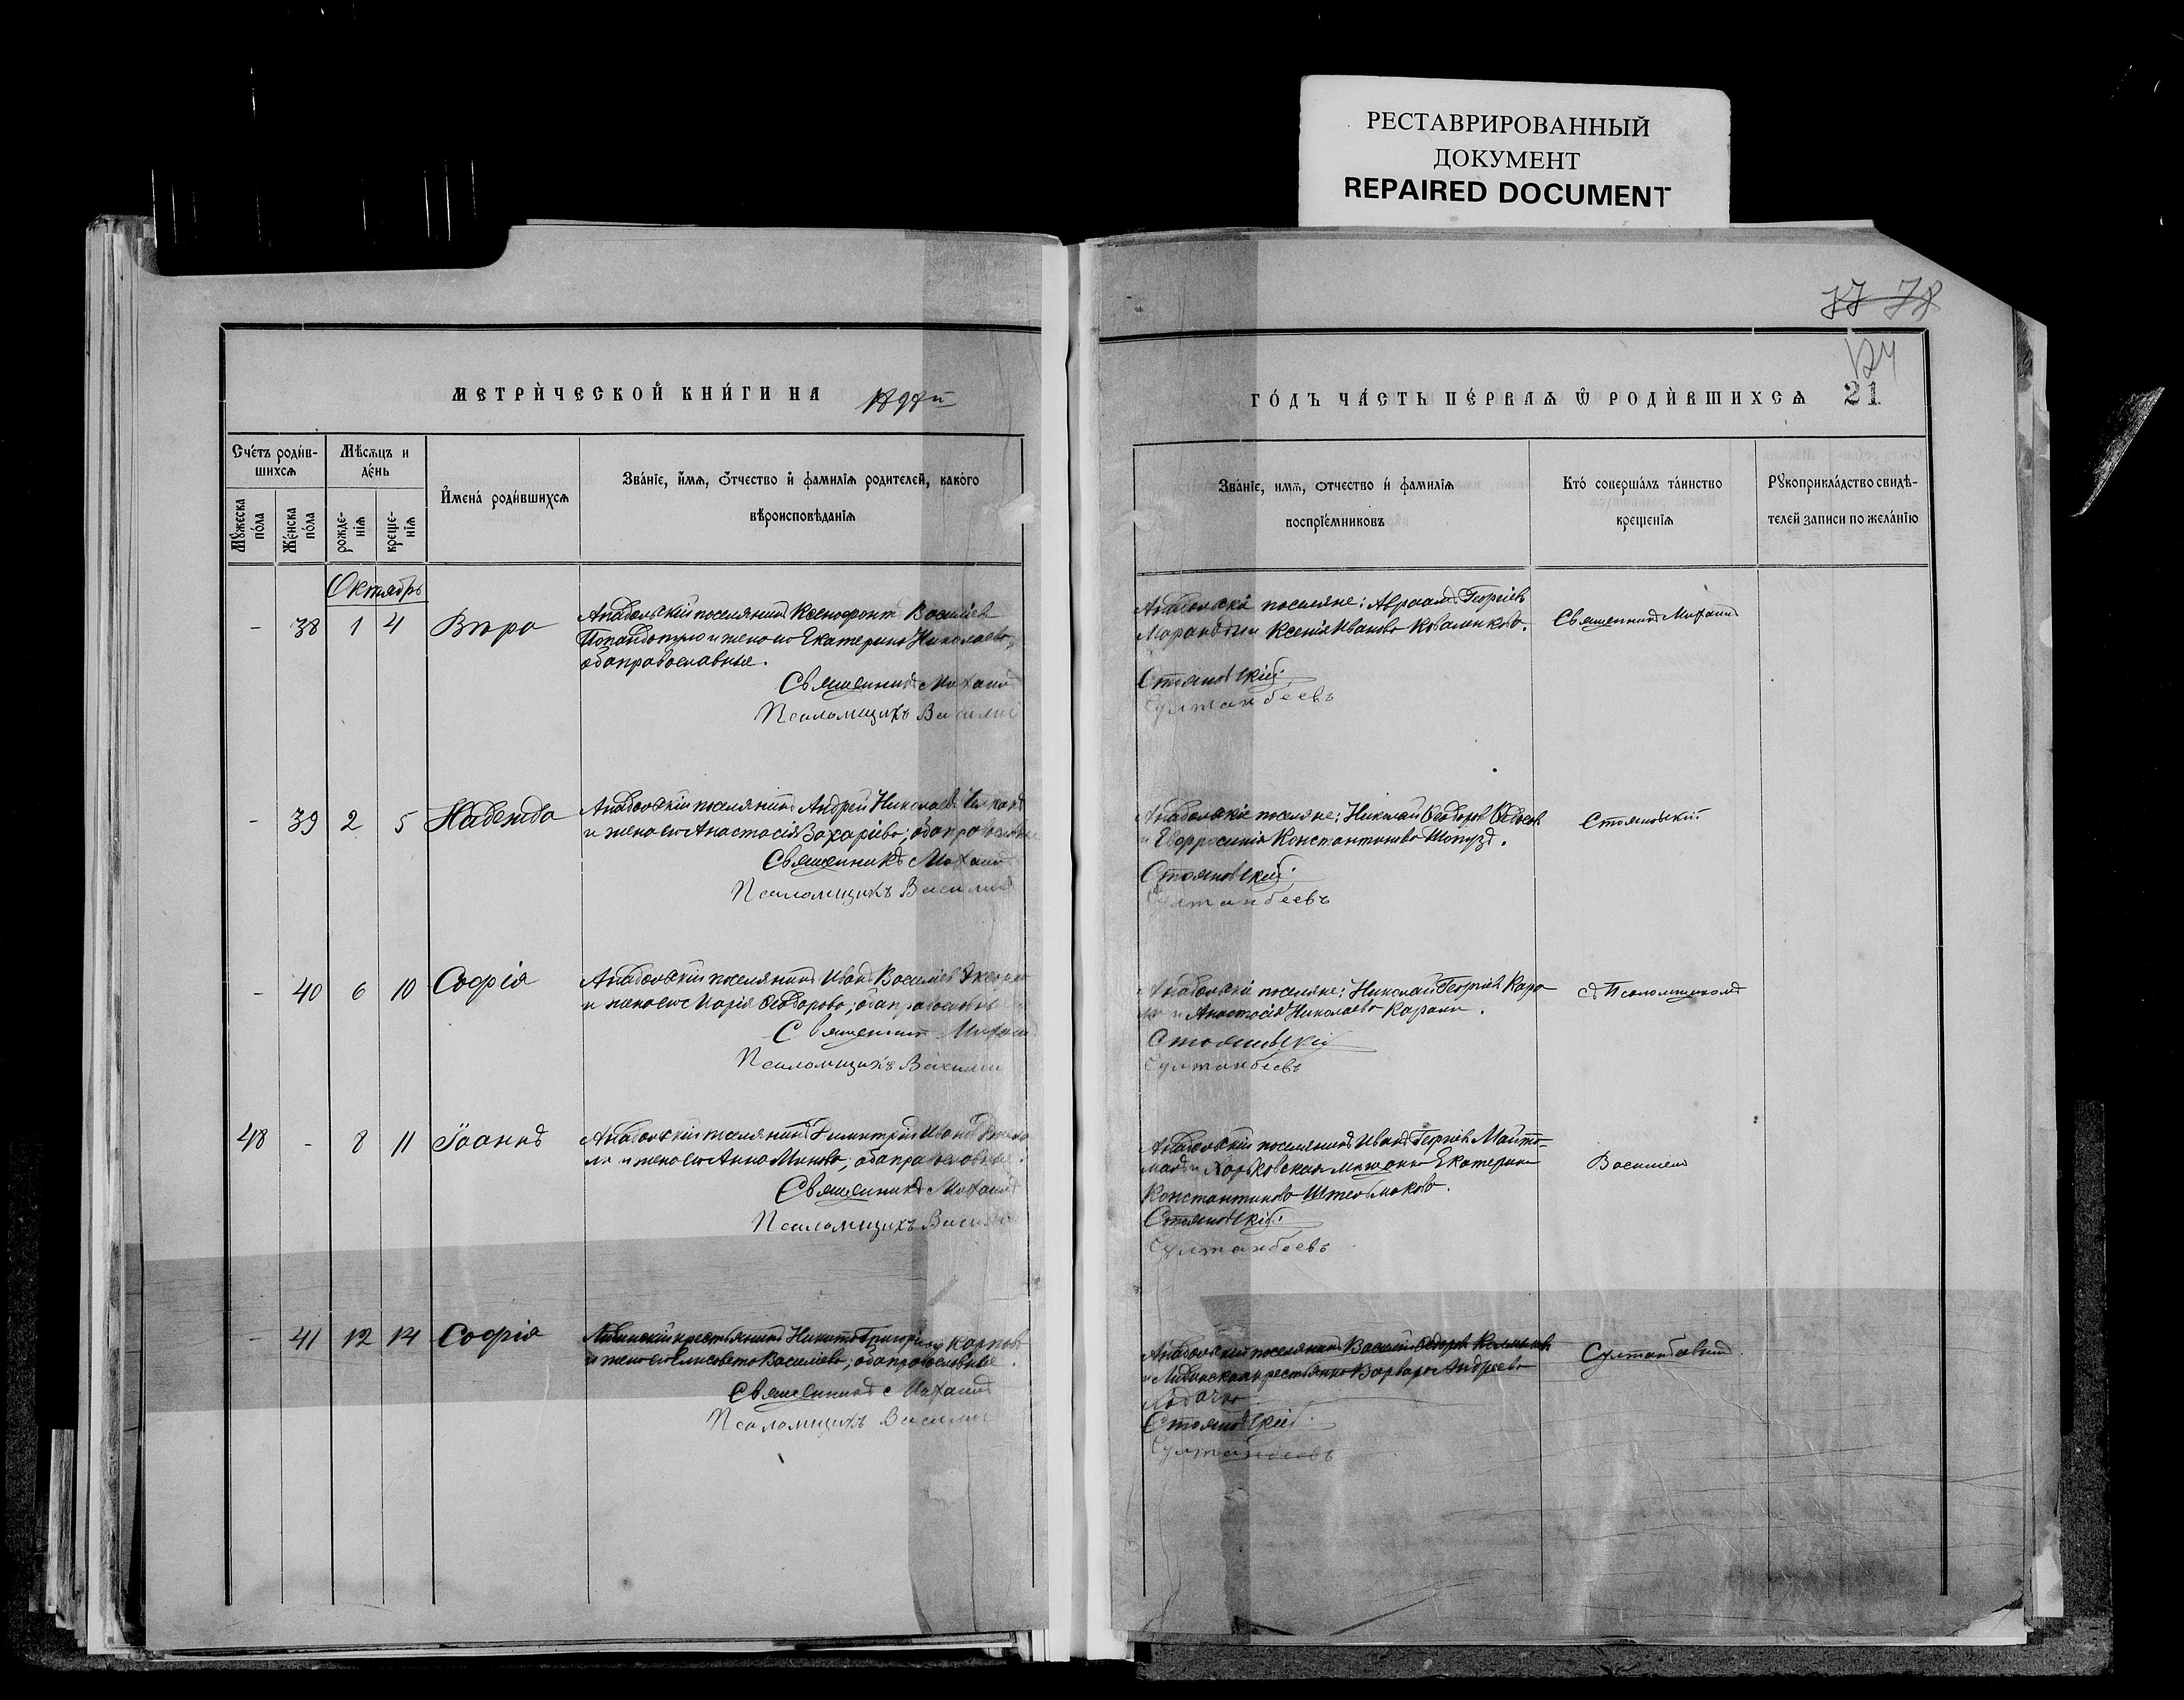 РЕСТАВРИРОВАННЫЙ
ДОКУМЕНТ
REPAIRED DOCUMENT
77 78
124
МЕТРИ́ЧЕСКОЙ КНИ́ГИ НА 1898й
ГО́ДЪ ЧА́СТЬ ПЕ́РВАѦ Ѿ РОДИ́ВШИХСѦ 21
Сче́тъ роди́в-
шихсѧ
Мѣ́сѧцъ и
де́нь
Мꙋ́жеска
по́ла
Же́нска
по́ла
рожде-
нїѧ
креще-
нїѧ
И҆мена̀ роди́вшихсѧ
Зва́нїе, и҆́мѧ, ѻ҆́тчество и҆ фами́лїѧ роди́телей, како́гѡ
вѣроисповѣ́данїѧ
Зва́нїе, имѧ, отчество и фами́лїѧ
воспрїе́мниковъ
Кто̀ соверша́лъ та́инство
креще́нїѧ
Рꙋкоприкла́дство свидѣ́-
телей записи по жела́нїю
Октябрь
- 38 1 4 Вѣра
Анадольскій поселянинъ Ксенофонтъ Василіевъ
и жена его Екатерина Николаева,
оба православные.
Священникъ Михаилъ
Псаломщикъ Василій
Анадольскіе поселяне: Авраамъ Георгіевъ
и Ксенія Иванова Коваленкова.
Стояновскій
Султанбеевъ
Священникъ Михаилъ
- 39 2 5 Надежда
Анадольскій поселянинъ Андрей Николаевъ
и жена его Анастасія Захаріева; оба православные
Священникъ Михаилъ
Псаломщикъ Василій
Анадольскіе поселяне: Николай Ѳеодоровъ
и Евфросинія Константинова Шопузъ.
Стояновскій
Султанбеевъ
Стояновскій
- 40 6 10 Софія
Анадольскій поселянинъ Иванъ Василіевъ
и жена его Марія Ѳеодорова; оба православные
Священникъ Михаилъ
Псаломщикъ Василій
Анадольскіе поселяне: Николай Георгіевъ Кара-
и Анастасія Николаева
Стояновскій
Султанбеевъ
съ Псаломщикомъ
48 - 8 11 Іоаннъ
Анадольскій поселянинъ Димитрій Ивановъ
и жена его Анна Минова; оба православные.
Священникъ Михаилъ
Псаломщикъ Василій
Анадольскій поселянинъ Иванъ Георгіевъ
и Харьковская мѣщанка Екатерина
Константинова
Стояновскій
Султанбеевъ
Василіемъ
- 41 12 14 Софія
крестьянинъ Никита Григорьевъ Карповъ
и жена его Елисавета Василіева; оба православные.
Священникъ Михаилъ
Псаломщикъ Василій
Анадольскій поселянинъ Василій Ѳеодоровъ
и крестьянка Варвара Андреева
Стояновскій
Султанбеевъ
Султанбеевымъ